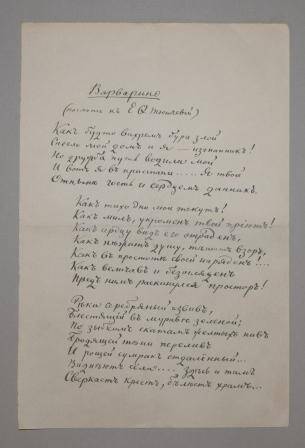 Варварино
(посланіе къ Е. Ѳ. Тютчевой)
Какъ будто вихремъ бури злой
Снесло мой домъ и я — изгнанникъ!
Но дружба путь водила мой
И вотъ я въ пристани..... Я твой
Отнынѣ гость и сердцемъ данникъ.
Какъ тихо дни мои текутъ!
Какъ милъ, укроменъ твой пріютъ!
Какъ сердцу видъ его отраденъ,
Какъ нѣжитъ душу, тѣшитъ взоръ,
Какъ въ простотѣ своей наряденъ!...
Какъ величавъ и
Предъ нимъ раскинулся просторъ!
Рѣки серебряный извивъ,
Блестящій въ муравѣ зеленой;
По зыбкимъ скатамъ желтыхъ нивъ
Бродящей тѣни переливъ
И рощей сумракъ отдаленный...
Виднѣютъ села.... здѣсь и тамъ
Сверкаетъ крестъ, бѣлѣетъ храмъ...